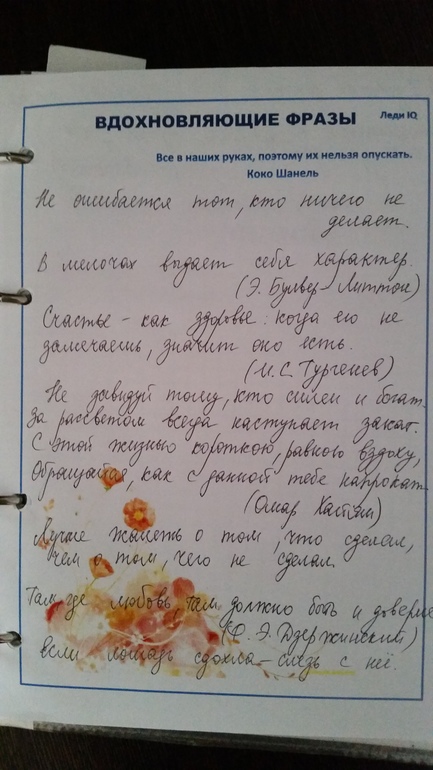 ВДОХНОВЛЯЮЩИЕ ФРАЗЫ Леди IQ
Все в наших руках, поэтому их нельзя опускать.
Коко Шанель
Не ошибается тот, кто ничего не
делает.
В мелочах выдает себя характер.
(Э. Булвер-Литтон)
Счастье - как здоровье: когда его не
замечаешь, значит оно есть.
(И.С. Тургенев)
Не завидуй тому, кто силен и богат.
За рассветом всегда наступает закат.
С этой жизнью короткою, равною вздоху,
Обращайся, как с данной тебе напрокат.
(Омар Хайям)
Лучше жалеть о том, что сделал,
чем о том, чего не сделал.
Там где любовь, там должно быть и доверие
(Ф. Э. Дзержинский)
если лошадь сдохла - слезь с неё.